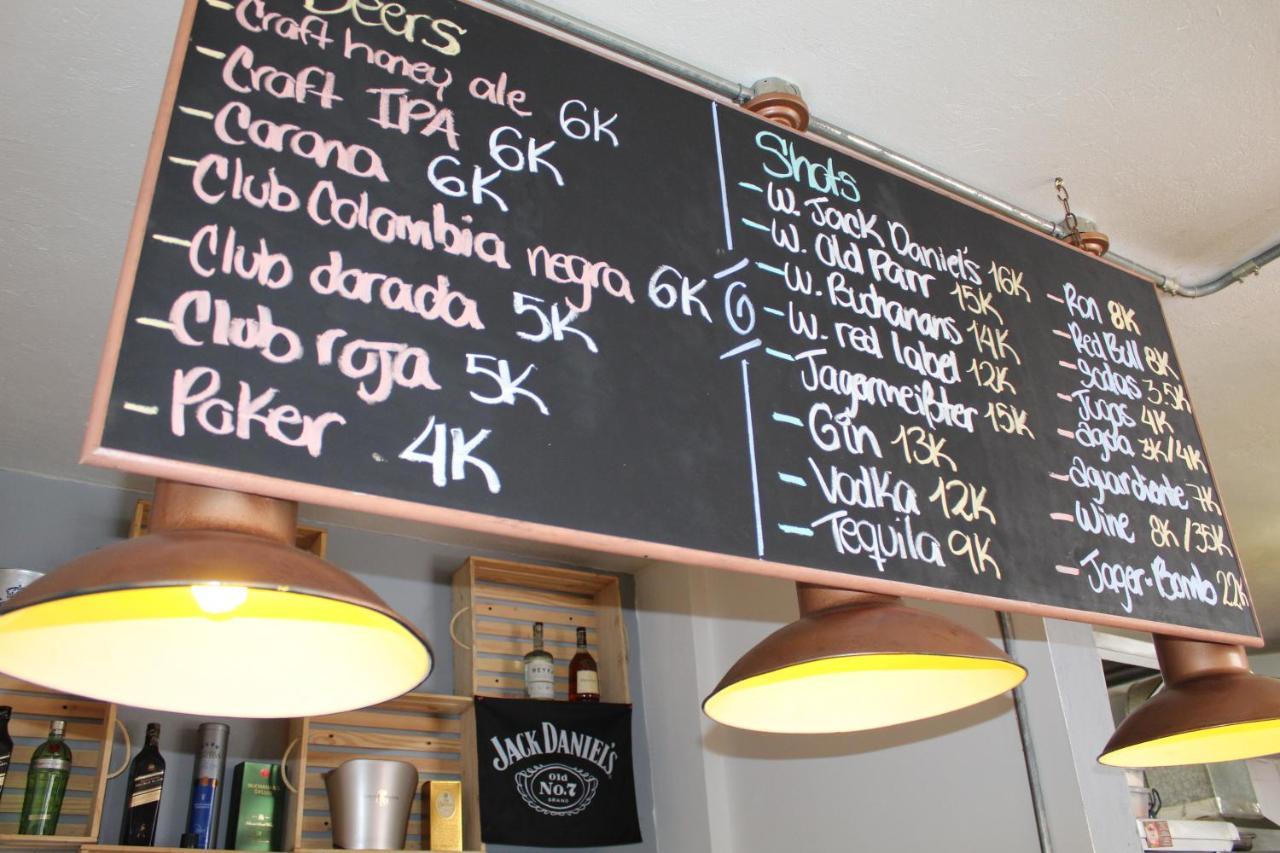 Beers
- Craft honey ale 6K
- Craft IPA 6K
- Corona 6K
- Club Colombia negra 6K
- Club dorada 5K
- Club roja 5K
- Poker 4K
Shots
- W. Jack Daniel's 16K
- W. Old Parr 15K
- W. Buchanans 14K
- W. red label 12K
- Jagermeißter 15K
- Gin 13K
- Vodka 12K
- Tequila 9K
- Ron 8K
- Red Bull 8K
- godas 3.5K
- Jugos 4K
- agua 3K/4K
- aguardiente 7K
- Wine 8K/35K
- Jager-Bomb 22K
JACK DANIEL'S
Old
No.7
BRAND